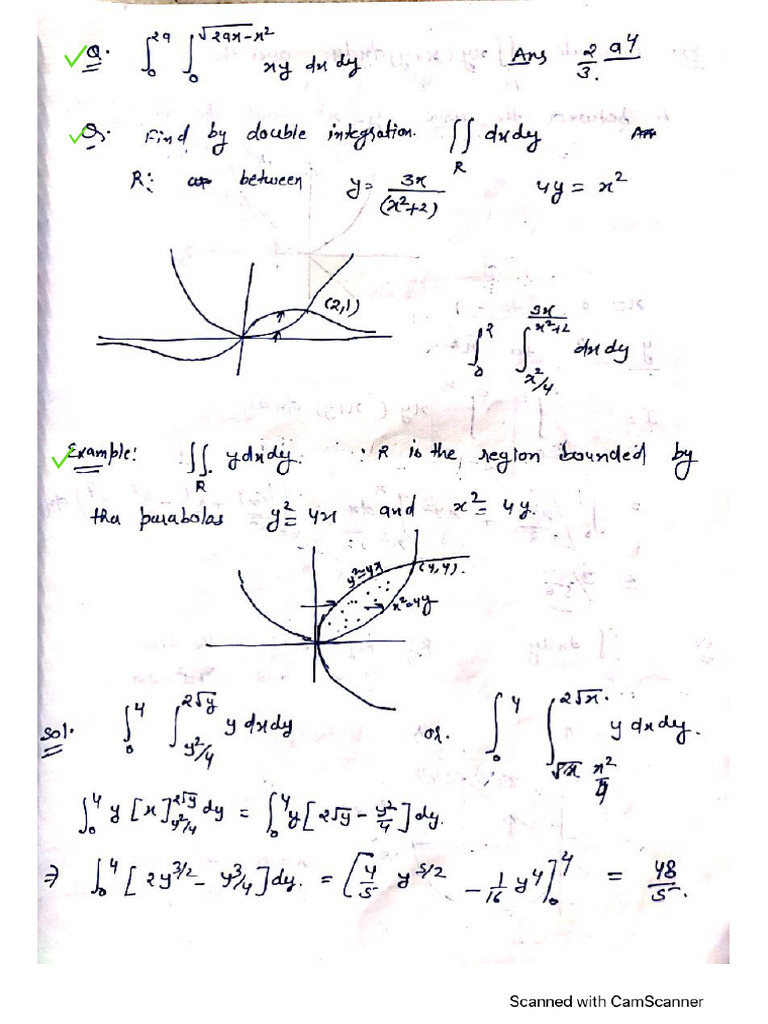 Q. ∫₀^2a ∫₀^√(2ax-x²) xy dx dy Ans 2/3. a⁴
Q. Find by double integration. ∬_R dxdy Ans
R: between y = 3x/(x²+2) 4y = x²
(2,1)
∫₀² ∫_x²/4^3x/(x²+2) dx dy
Example: ∬_R y dx dy. : R is the region bounded by
tha parabolas y² = 4x and x² = 4y.
y²=4x (4,4).
x²=4y
Sol. ∫₀⁴ ∫_y²/4^2√y y dx dy or. ∫₀⁴ ∫_x²/4^2√x. y dx dy.
∫₀⁴ y [x]_y²/4^2√y dy = ∫₀⁴ y [2√y - y²/4] dy.
⇒ ∫₀⁴ [2y^3/2 - y³/4] dy. = [4/5 y^5/2 - 1/16 y⁴]₀⁴ = 48/5.
Scanned with CamScanner